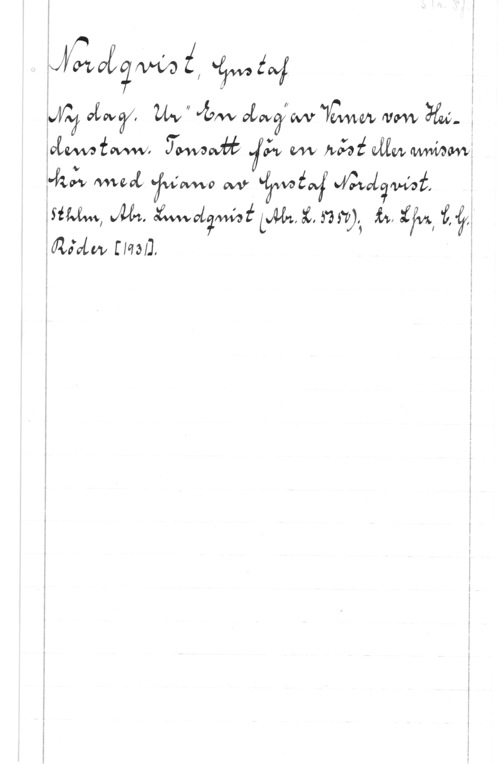 Nordqvist, Gustaf
Ny dag. Ur "En dag" av Verner von Hei-
denstam. Tonsatt för en röst eller unison
kör med piano av Gustaf Nordqvist.
Sthlm, Abr. Lundquist (Abr. L. 5350); tr. Lpz, C. G.
Röder [1931].